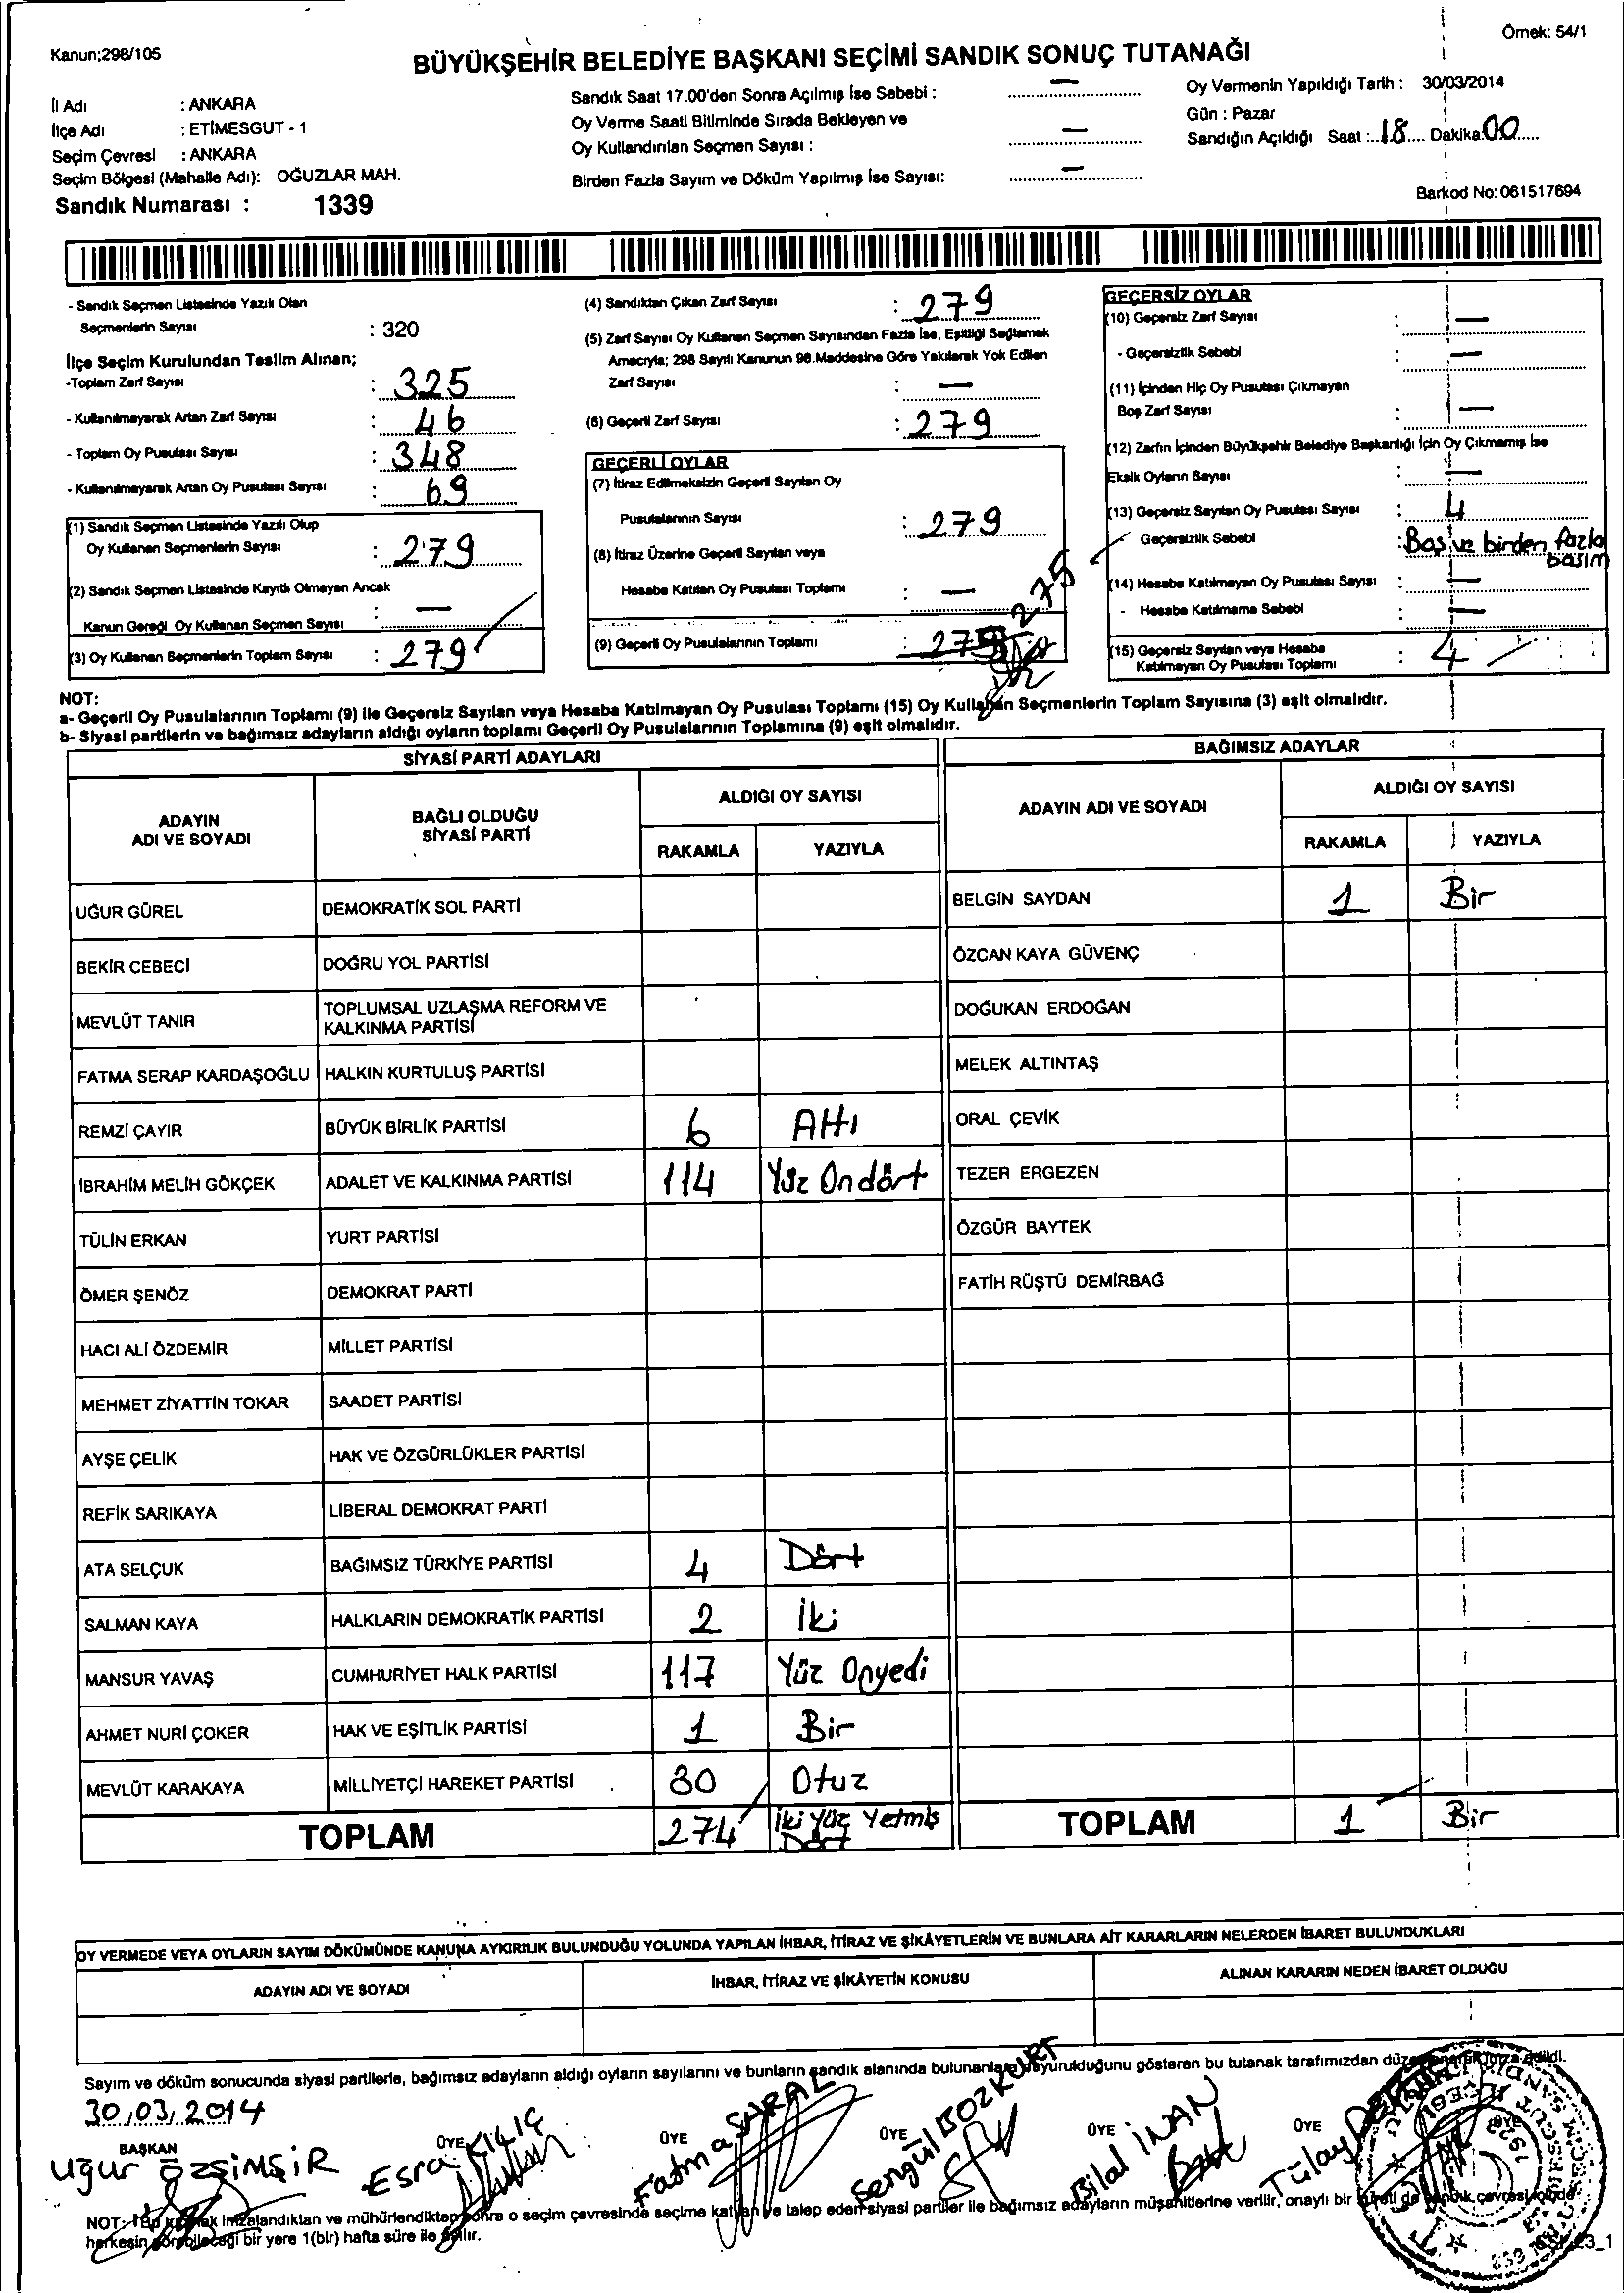 Kanun;298/105
Örnek: 54/1
BÜYÜKŞEHİR BELEDİYE BAŞKANI SEÇİMİ SANDIK SONUÇ TUTANAĞI
İl Adı : ANKARA
İlçe Adı : ETİMESGUT - 1
Seçim Çevresi : ANKARA
Seçim Bölgesi (Mahalle Adı): OĞUZLAR MAH.
Sandık Numarası : 1339
Sandık Saat 17.00'den Sonra Açılmış İse Sebebi : —
Oy Verme Saati Bitiminde Sırada Bekleyen ve
Oy Kullandırılan Seçmen Sayısı : —
Birden Fazla Sayım ve Döküm Yapılmış İse Sayısı: —
Oy Vermenin Yapıldığı Tarih : 30/03/2014
Gün : Pazar
Sandığın Açıldığı Saat :..18.... Dakika:00.....
Barkod No: 061517694
- Sandık Seçmen Listesinde Yazılı Olan
Seçmenlerin Sayısı : 320
İlçe Seçim Kurulundan Teslim Alınan;
-Toplam Zarf Sayısı : 325
- Kullanılmayarak Artan Zarf Sayısı : 46
- Toplam Oy Pusulası Sayısı : 348
- Kullanılmayarak Artan Oy Pusulası Sayısı : 69
(1) Sandık Seçmen Listesinde Yazılı Olup
Oy Kullanan Seçmenlerin Sayısı : 279
(2) Sandık Seçmen Listesinde Kayıtlı Olmayan Ancak
Kanun Gereği Oy Kullanan Seçmen Sayısı : —
(3) Oy Kullanan Seçmenlerin Toplam Sayısı : 279
(4) Sandıktan Çıkan Zarf Sayısı : 279
(5) Zarf Sayısı Oy Kullanan Seçmen Sayısından Fazla İse, Eşitliği Sağlamak
Amacıyla; 298 Sayılı Kanunun 98.Maddesine Göre Yakılarak Yok Edilen
Zarf Sayısı : —
(6) Geçerli Zarf Sayısı : 279
GEÇERLİ OYLAR
(7) İtiraz Edilmeksizin Geçerli Sayılan Oy
Pusulalarının Sayısı : 279
(8) İtiraz Üzerine Geçerli Sayılan veya
Hesaba Katılan Oy Pusulası Toplamı : —
(9) Geçerli Oy Pusulalarının Toplamı : 279 275
GEÇERSİZ OYLAR
(10) Geçersiz Zarf Sayısı : —
- Geçersizlik Sebebi : —
(11) İçinden Hiç Oy Pusulası Çıkmayan
Boş Zarf Sayısı : —
(12) Zarfın İçinden Büyükşehir Belediye Başkanlığı İçin Oy Çıkmamış İse
Eksik Oyların Sayısı : —
(13) Geçersiz Sayılan Oy Pusulası Sayısı : 4
Geçersizlik Sebebi :Boş ve birden fazla
basım
(14) Hesaba Katılmayan Oy Pusulası Sayısı : —
- Hesaba Katılmama Sebebi : —
(15) Geçersiz Sayılan veya Hesaba
Katılmayan Oy Pusulası Toplamı : 4
NOT:
a- Geçerli Oy Pusulalarının Toplamı (9) ile Geçersiz Sayılan veya Hesaba Katılmayan Oy Pusulası Toplamı (15) Oy Kullanan Seçmenlerin Toplam Sayısına (3) eşit olmalıdır.
b- Siyasi partilerin ve bağımsız adayların aldığı oyların toplamı Geçerli Oy Pusulalarının Toplamına (9) eşit olmalıdır.
SİYASİ PARTİ ADAYLARI
ADAYIN ADI VE SOYADI BAĞLI OLDUĞU SİYASİ PARTİ ALDIĞI OY SAYISI
RAKAMLA YAZIYLA
UĞUR GÜREL DEMOKRATİK SOL PARTİ
BEKİR CEBECİ DOĞRU YOL PARTİSİ
MEVLÜT TANIR TOPLUMSAL UZLAŞMA REFORM VE
KALKINMA PARTİSİ
FATMA SERAP KARDAŞOĞLU HALKIN KURTULUŞ PARTİSİ
REMZİ ÇAYIR BÜYÜK BİRLİK PARTİSİ 6 Altı
İBRAHİM MELİH GÖKÇEK ADALET VE KALKINMA PARTİSİ 114 Yüz Ondört
TÜLİN ERKAN YURT PARTİSİ
ÖMER ŞENÖZ DEMOKRAT PARTİ
HACI ALİ ÖZDEMİR MİLLET PARTİSİ
MEHMET ZİYATTİN TOKAR SAADET PARTİSİ
AYŞE ÇELİK HAK VE ÖZGÜRLÜKLER PARTİSİ
REFİK SARIKAYA LİBERAL DEMOKRAT PARTİ
ATA SELÇUK BAĞIMSIZ TÜRKİYE PARTİSİ 4 Dört
SALMAN KAYA HALKLARIN DEMOKRATİK PARTİSİ 2 İki
MANSUR YAVAŞ CUMHURİYET HALK PARTİSİ 117 Yüz Onyedi
AHMET NURİ ÇOKER HAK VE EŞİTLİK PARTİSİ 1 Bir
MEVLÜT KARAKAYA MİLLİYETÇİ HAREKET PARTİSİ 30 Otuz
TOPLAM 274 İki Yüz Yetmiş
Dört
BAĞIMSIZ ADAYLAR
ADAYIN ADI VE SOYADI ALDIĞI OY SAYISI
RAKAMLA YAZIYLA
BELGİN SAYDAN 1 Bir
ÖZCAN KAYA GÜVENÇ
DOĞUKAN ERDOĞAN
MELEK ALTINTAŞ
ORAL ÇEVİK
TEZER ERGEZEN
ÖZGÜR BAYTEK
FATİH RÜŞTÜ DEMİRBAĞ
TOPLAM 1 Bir
OY VERMEDE VEYA OYLARIN SAYIM DÖKÜMÜNDE KANUNA AYKIRILIK BULUNDUĞU YOLUNDA YAPILAN İHBAR, İTİRAZ VE ŞİKÂYETLERİN VE BUNLARA AİT KARARLARIN NELERDEN İBARET BULUNDUKLARI
ADAYIN ADI VE SOYADI İHBAR, İTİRAZ VE ŞİKÂYETİN KONUSU ALINAN KARARIN NEDEN İBARET OLDUĞU
Sayım ve döküm sonucunda siyasi partilerle, bağımsız adayların aldığı oyların sayılarını ve bunların sandık alanında bulunanlara duyurulduğunu gösteren bu tutanak tarafımızdan
30/03/2014
BAŞKAN ÜYE ÜYE ÜYE ÜYE ÜYE ÜYE
Uğur ÖZŞİMŞİR Esra KILIÇ Fatma SARAL Şengül BOZKURT Bilal İNAN Tülay
NOT: imzalandıktan ve mühürlendikten sonra o seçim çevresinde seçime katılan ve talep eden siyasi partiler ile bağımsız adayların müşahitlerine verilir, onaylı bir sureti de sandık çevresi içinde
herkesin görebileceği bir yere 1(bir) hafta süre ile asılır.